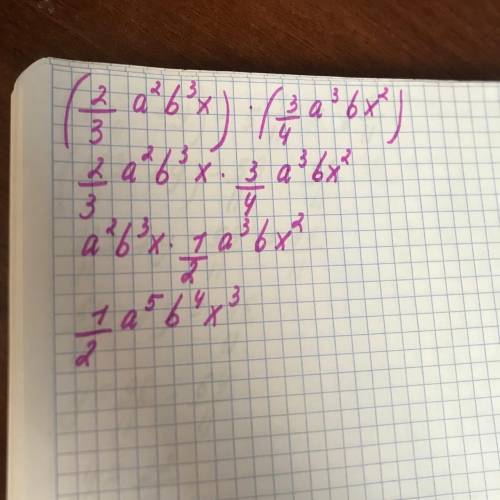 (2/3 a²b³x) · (3/4 a³bx²)
2/3 a²b³x · 3/4 a³bx²
a²b³x · 1/2 a³bx²
1/2 a⁵b⁴x³